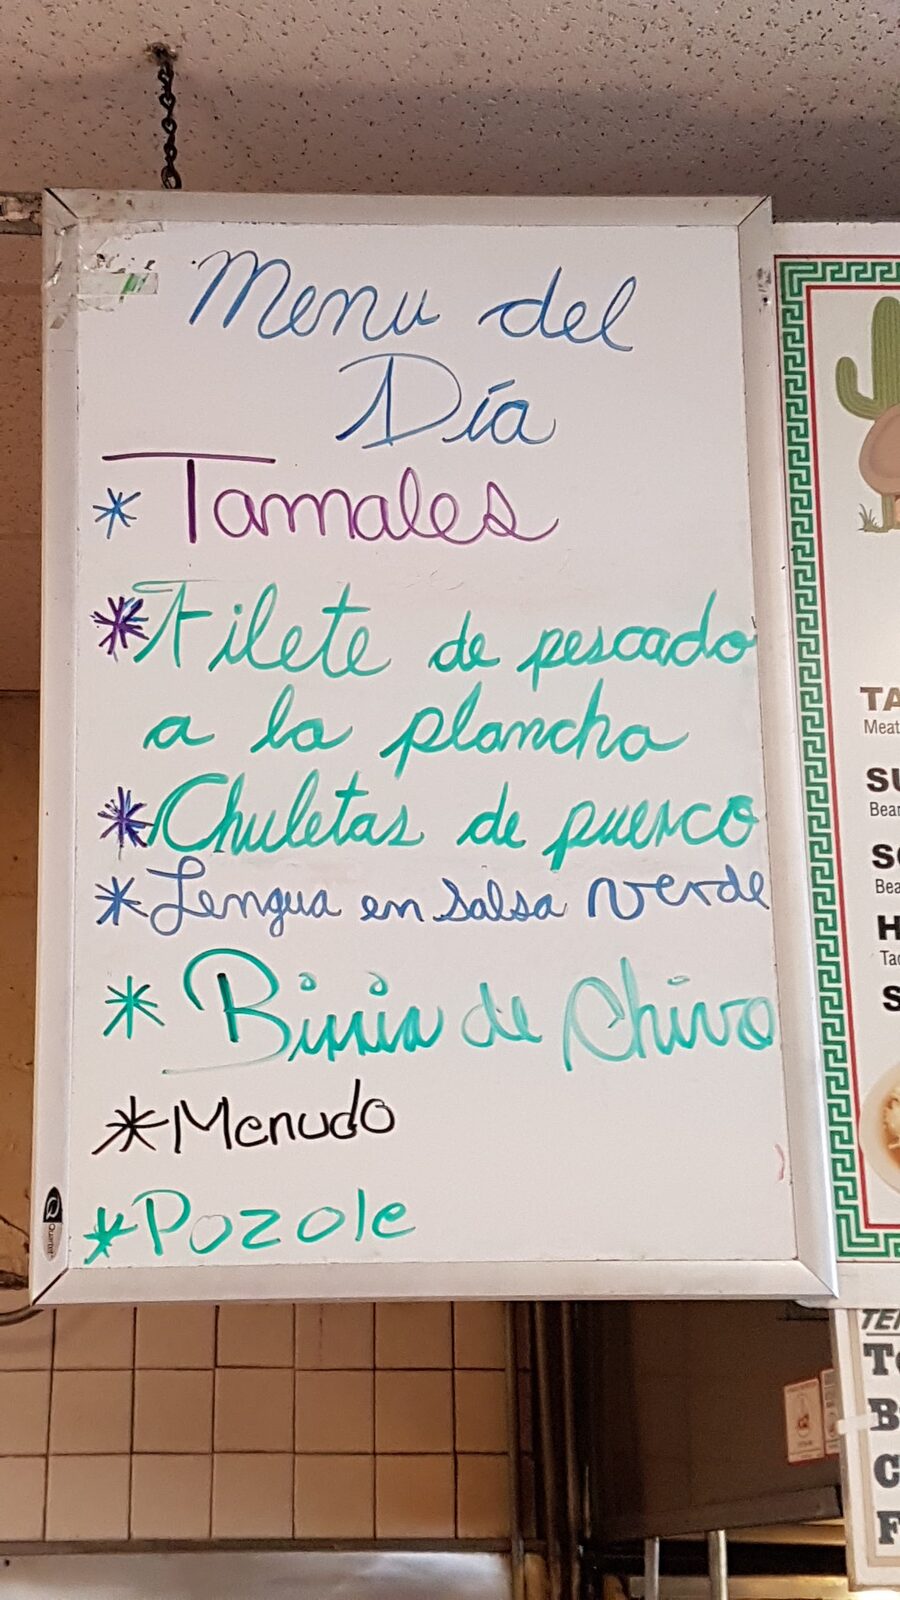 Menu del
Día
* Tamales
* Filete de pescado
a la plancha
* Chuletas de puerco
* Lengua en Salsa verde
* Birria de Chivo
* Menudo
* Pozole
Quartet
Meat
Bear
H